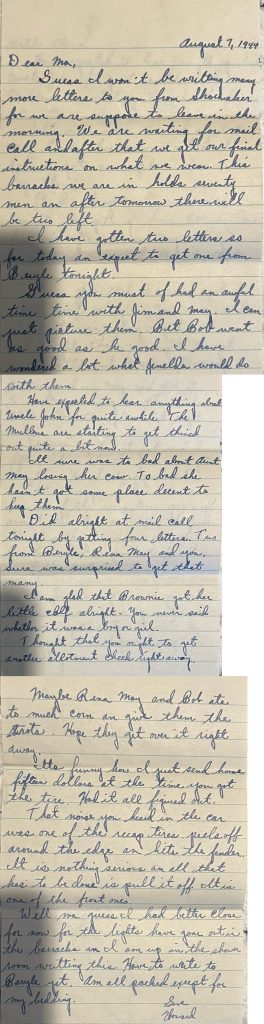 August 7, 1944
Dear Ma,
Guess I won't be writting many
more letters to you from Shoemaker
for we are suppose to leave in the
morning. We are waiting for mail
call and after that we get our final
instructions on what we wear. This
barracks we are in holds seventy
men an after tomorrow there will
be two left.
I have gotten two letters so
far today an expect to get one from
Beryle tonight.
Guess you must of had an awful
time time with Jim and May. I can
just picture them. Bet Bob went
as good as he good. I have
wondered a lot what would do
with them.
Have expected to hear anything about
Uncle John for quite awhile. The
Mullins are starting to get thined
out quite a bit now.
It sure was to bad about Aunt
May losing her cow. To bad she
hasn't got some place decent to
keep them
Did alright at mail call
tonight by getting four letters. Two
from Beryle, Rena May and you.
Sure was surprised to get that
many.
I am glad that Brownie got her
little calf alright. You never said
whether it was a boy or girl.
Thought that you ought to get
another allotment check right away.
Maybe Rena May and Bob ate
to much corn an give them the
trots. Hope they get over it right
away.
It's funny how I just send home
fifteen dollars at the time you got
the tire. Had it all figured out.
That noise you heard in the car
was one of the recap tires peels off
around the edge an hits the fender.
It is nothing serious an all that
has to be done is pull it off. It is
one of the front ones.
Well ma guess I had better close
for now for the lights have gone out in
the barracks an I am up in the shower
room writting this. Have to write to
Beryle yet. Am all packed except for
my bedding.
Love
Howard